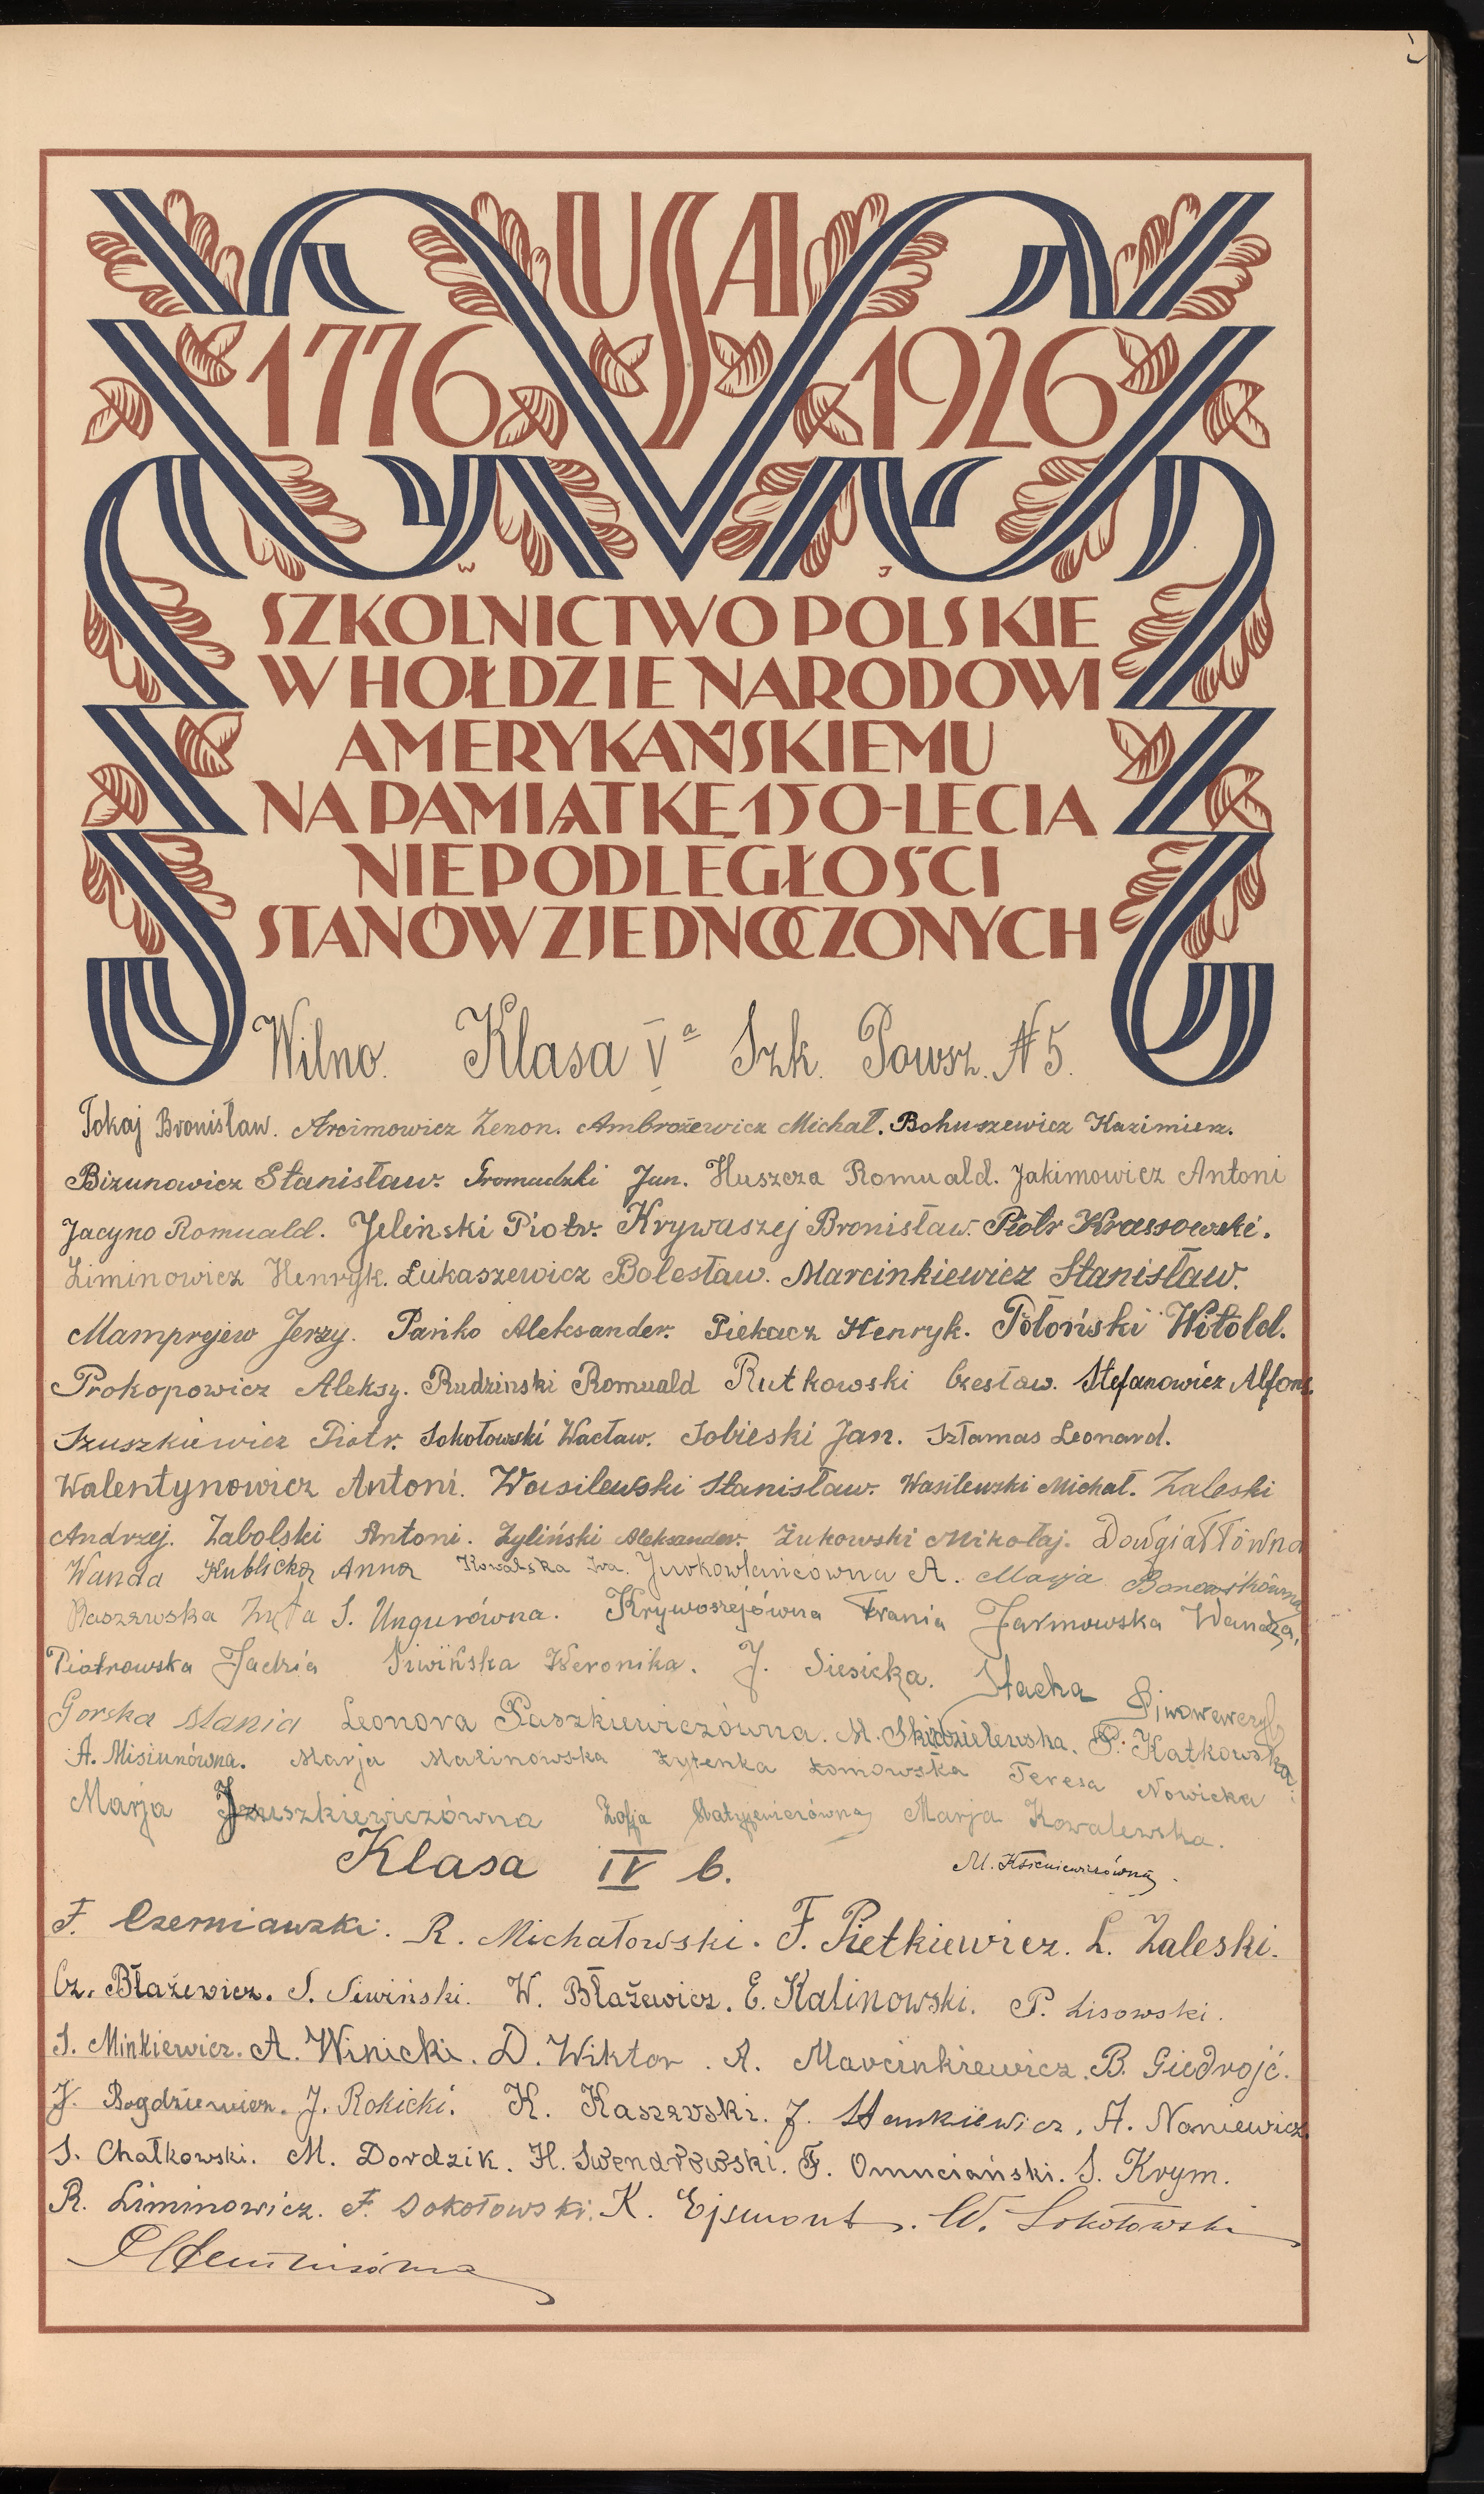 USA
1776 1926
W J
SZKOLNICTWO POLSKIE
W HOŁDZIE NARODOWI
AMERYKAŃSKIEMU
NA PAMIĄTKĘ 150-LECIA
NIEPODLEGŁOŚCI
STANÓW ZJEDNOCZONYCH
Wilno. Klasa Va Szk. Powsz. N 5.
Tokaj Bronisław. Arcimowicz Zenon. Ambrożewicz Michał. Bohuszewicz Kazimierz.
Bizunowicz Stanisław. Gromadzki Jan. Huszcza Romuald. Jakimowicz Antoni
Jacyno Romuald. Jeleński Piotr. Krywaszej Bronisław. Piotr Krassowski.
Liminowicz Henryk. Łukaszewicz Bolesław. Marcinkiewicz Stanisław.
Mamprejew Jerzy. Pańko Aleksander. Piekacz Henryk. Połoński Witold.
Prokopowicz Aleksy. Rudzinski Romuald Rutkowski Czesław. Stefanowicz Alfons.
Szuszkiewicz Piotr. Sokołowski Wacław. Sobieski Jan. Szłamas Leonard.
Walentynowicz Antoni. Wasilewski Stanisław. Wasilewski Michał. Zaleski
Andrzej. Zabolski Antoni. Żyliński Aleksander. Żukowski Mikołaj. Dowgiałłówna
Wanda Kublicka Anna Kowalska Iwa. Jurkowlańcówna A. Marja
Raszewska Zyta S. Ungurówna. Krywoszejówna Frania Jarmowska Wanda.
Piotrowska Jadzia Siwińska Weronika. J. Siesicka. Stacha
Gorska Mania Leonora Paszkiewiczówna. M. Skidzielewska. P. Katkowska.
A. Misiunówna. Marja Malinowska Zytenka Łomowska Teresa Nowicka
Marja Szuszkiewiczówna Zofja Marja Kowalewska.
Klasa IV b. M. Ksieniewiczówna.
F. Czerniawski. R. Michałowski. F. Pietkiewicz. L. Zaleski.
Cz. Błażewicz. S. Siwiński. W. Błażewicz. E. Kalinowski. P. Lisowski.
S. Minkiewicz. A. Winicki. D. Wiktor. A. Marcinkiewicz. B. Giedrojć.
J. Bogdziewicz. J. Rokicki. K. Kaszewski. J. Stankiewicz. A. Naniewicz.
S. Chałkowski. M. Dordzik. H. Swendrowski. F. Omuciański. S. Krym.
R. Liminowicz. F. Sokołowski. K. Ejsmont. W. Sokołowski